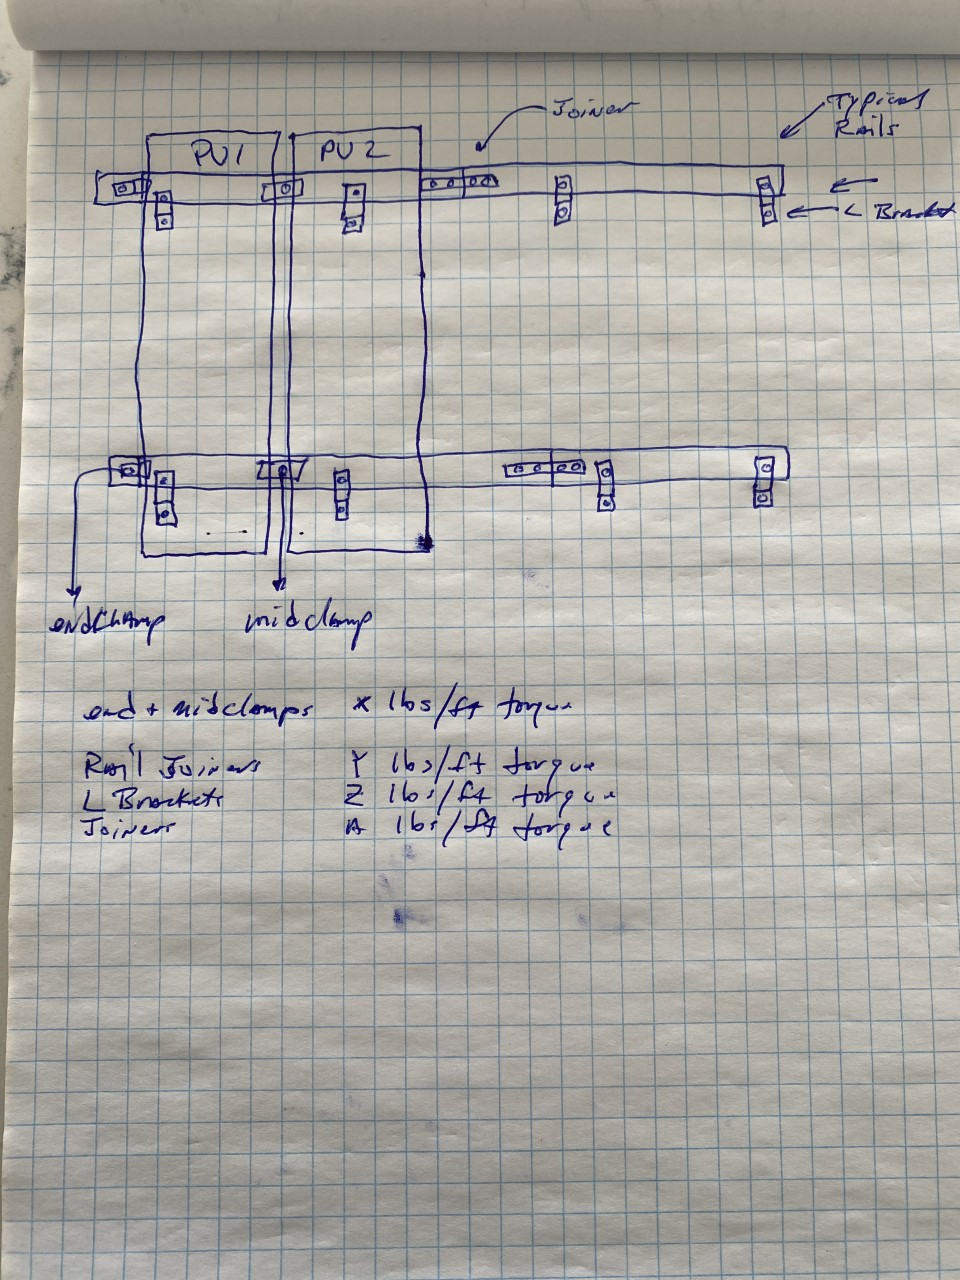 Joiner
Typical
Rails
PV1
PV2
L Bracket
endclamp
midclamp
end + midclamps X lbs/ft torque
Rail Joiners Y lbs/ft torque
L Brackets Z lbs/ft torque
Joiners A lbs/ft torque